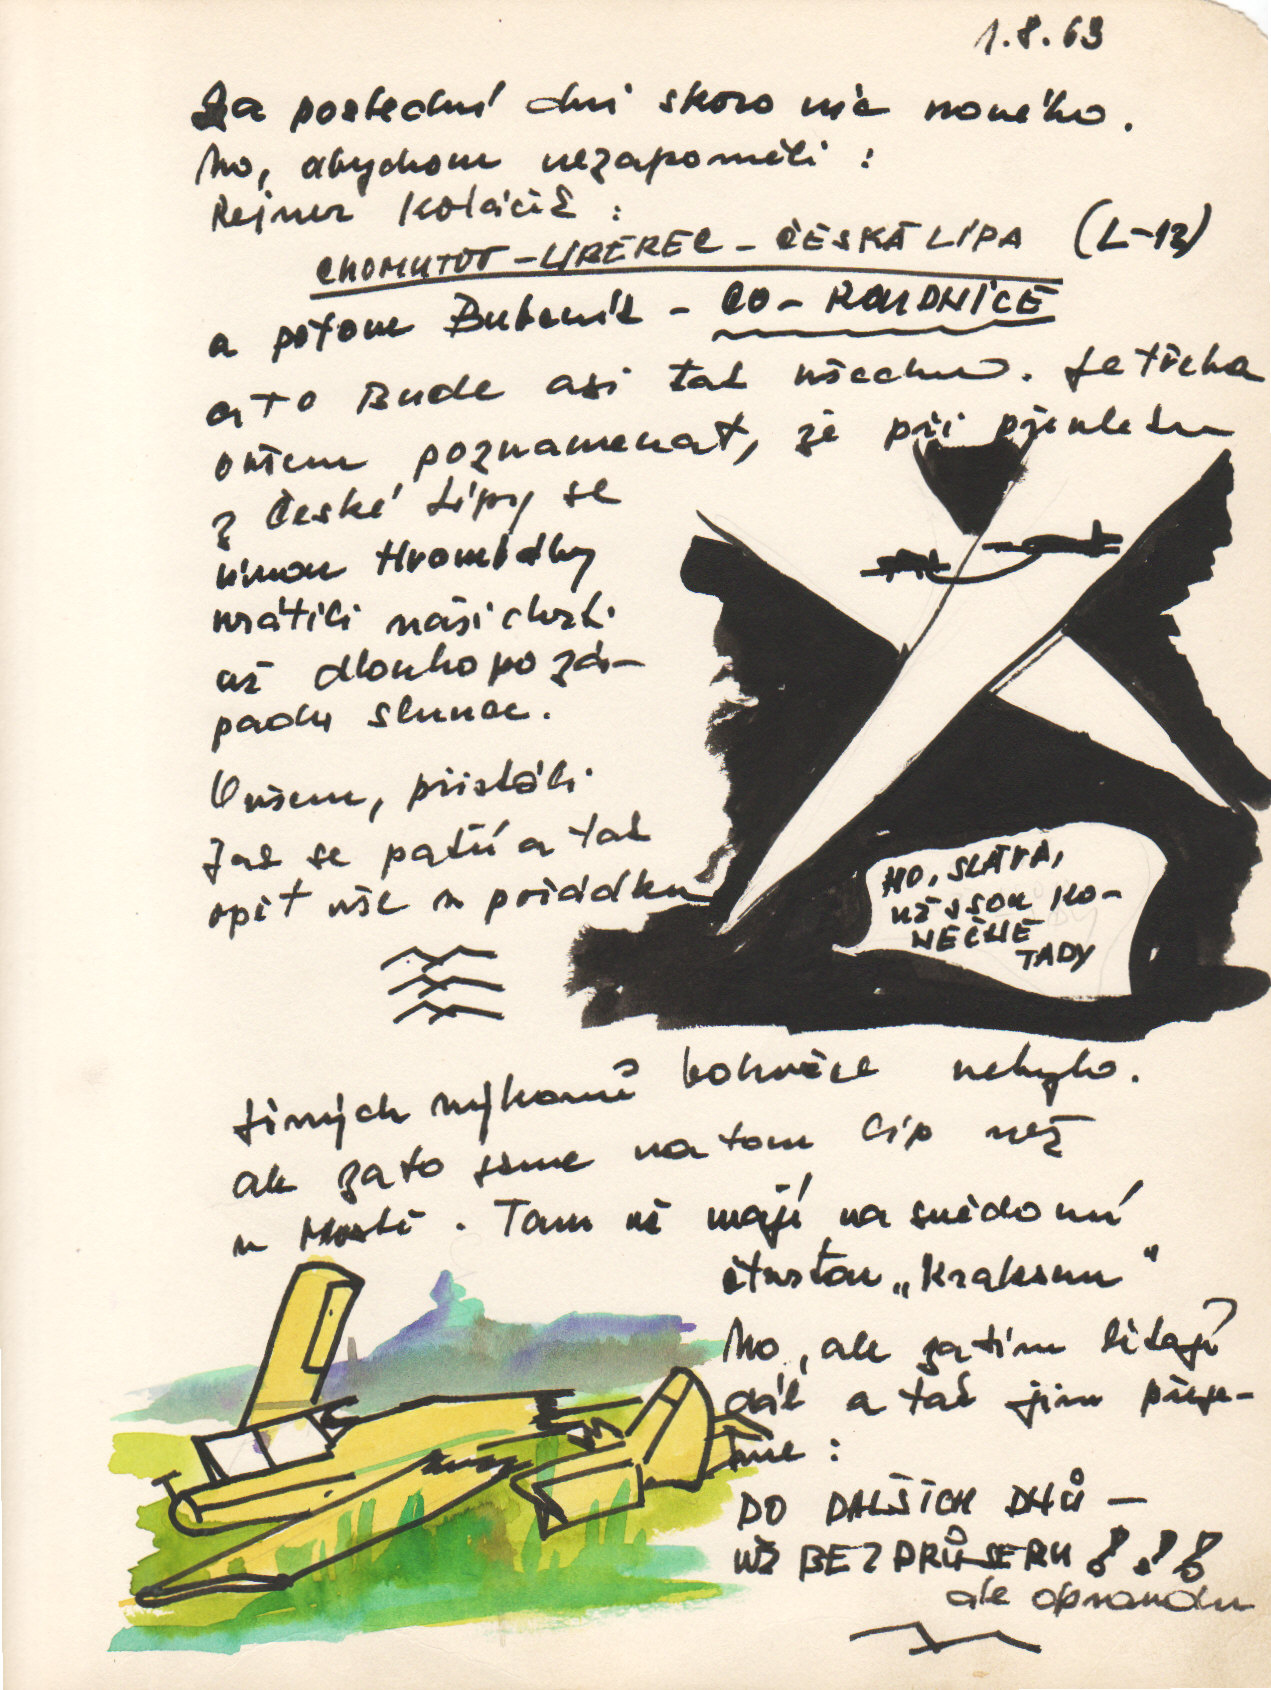 1.8.63
Za poslední dni skoro nic nového.
No, abychom nezapoměli :
Rejner Koláček :
CHOMUTOV – LIBEREC – ČESKÁ LÍPA (L-13)
a potom Bubeník – CO – ROUDNICE
a to Bude asi tak všechno. Je třeba
ovšem poznamenat, že při přeletu
z České Lípy se
vinou Hromádky
vrátili naši chrti
až dlouho po zá-
padu slunce.
Ovšem, přistáli
Jak se patří a tak
opět vše v pořádku
NO, SLÁVA,
UŽ JSOU KO-
NEČNĚ
TADY
Jiných výkonů bohužel nebylo.
ale zato jsme na tom líp než
v Mostě. Tam už mají na svědomí
čtvrtou „Kraksnu"
No, ale zatím lítají
dál a tak jim přeje-
me :
DO DALŠÍCH DNŮ –
UŽ BEZ PRŮSERU !!!
ale opravdu